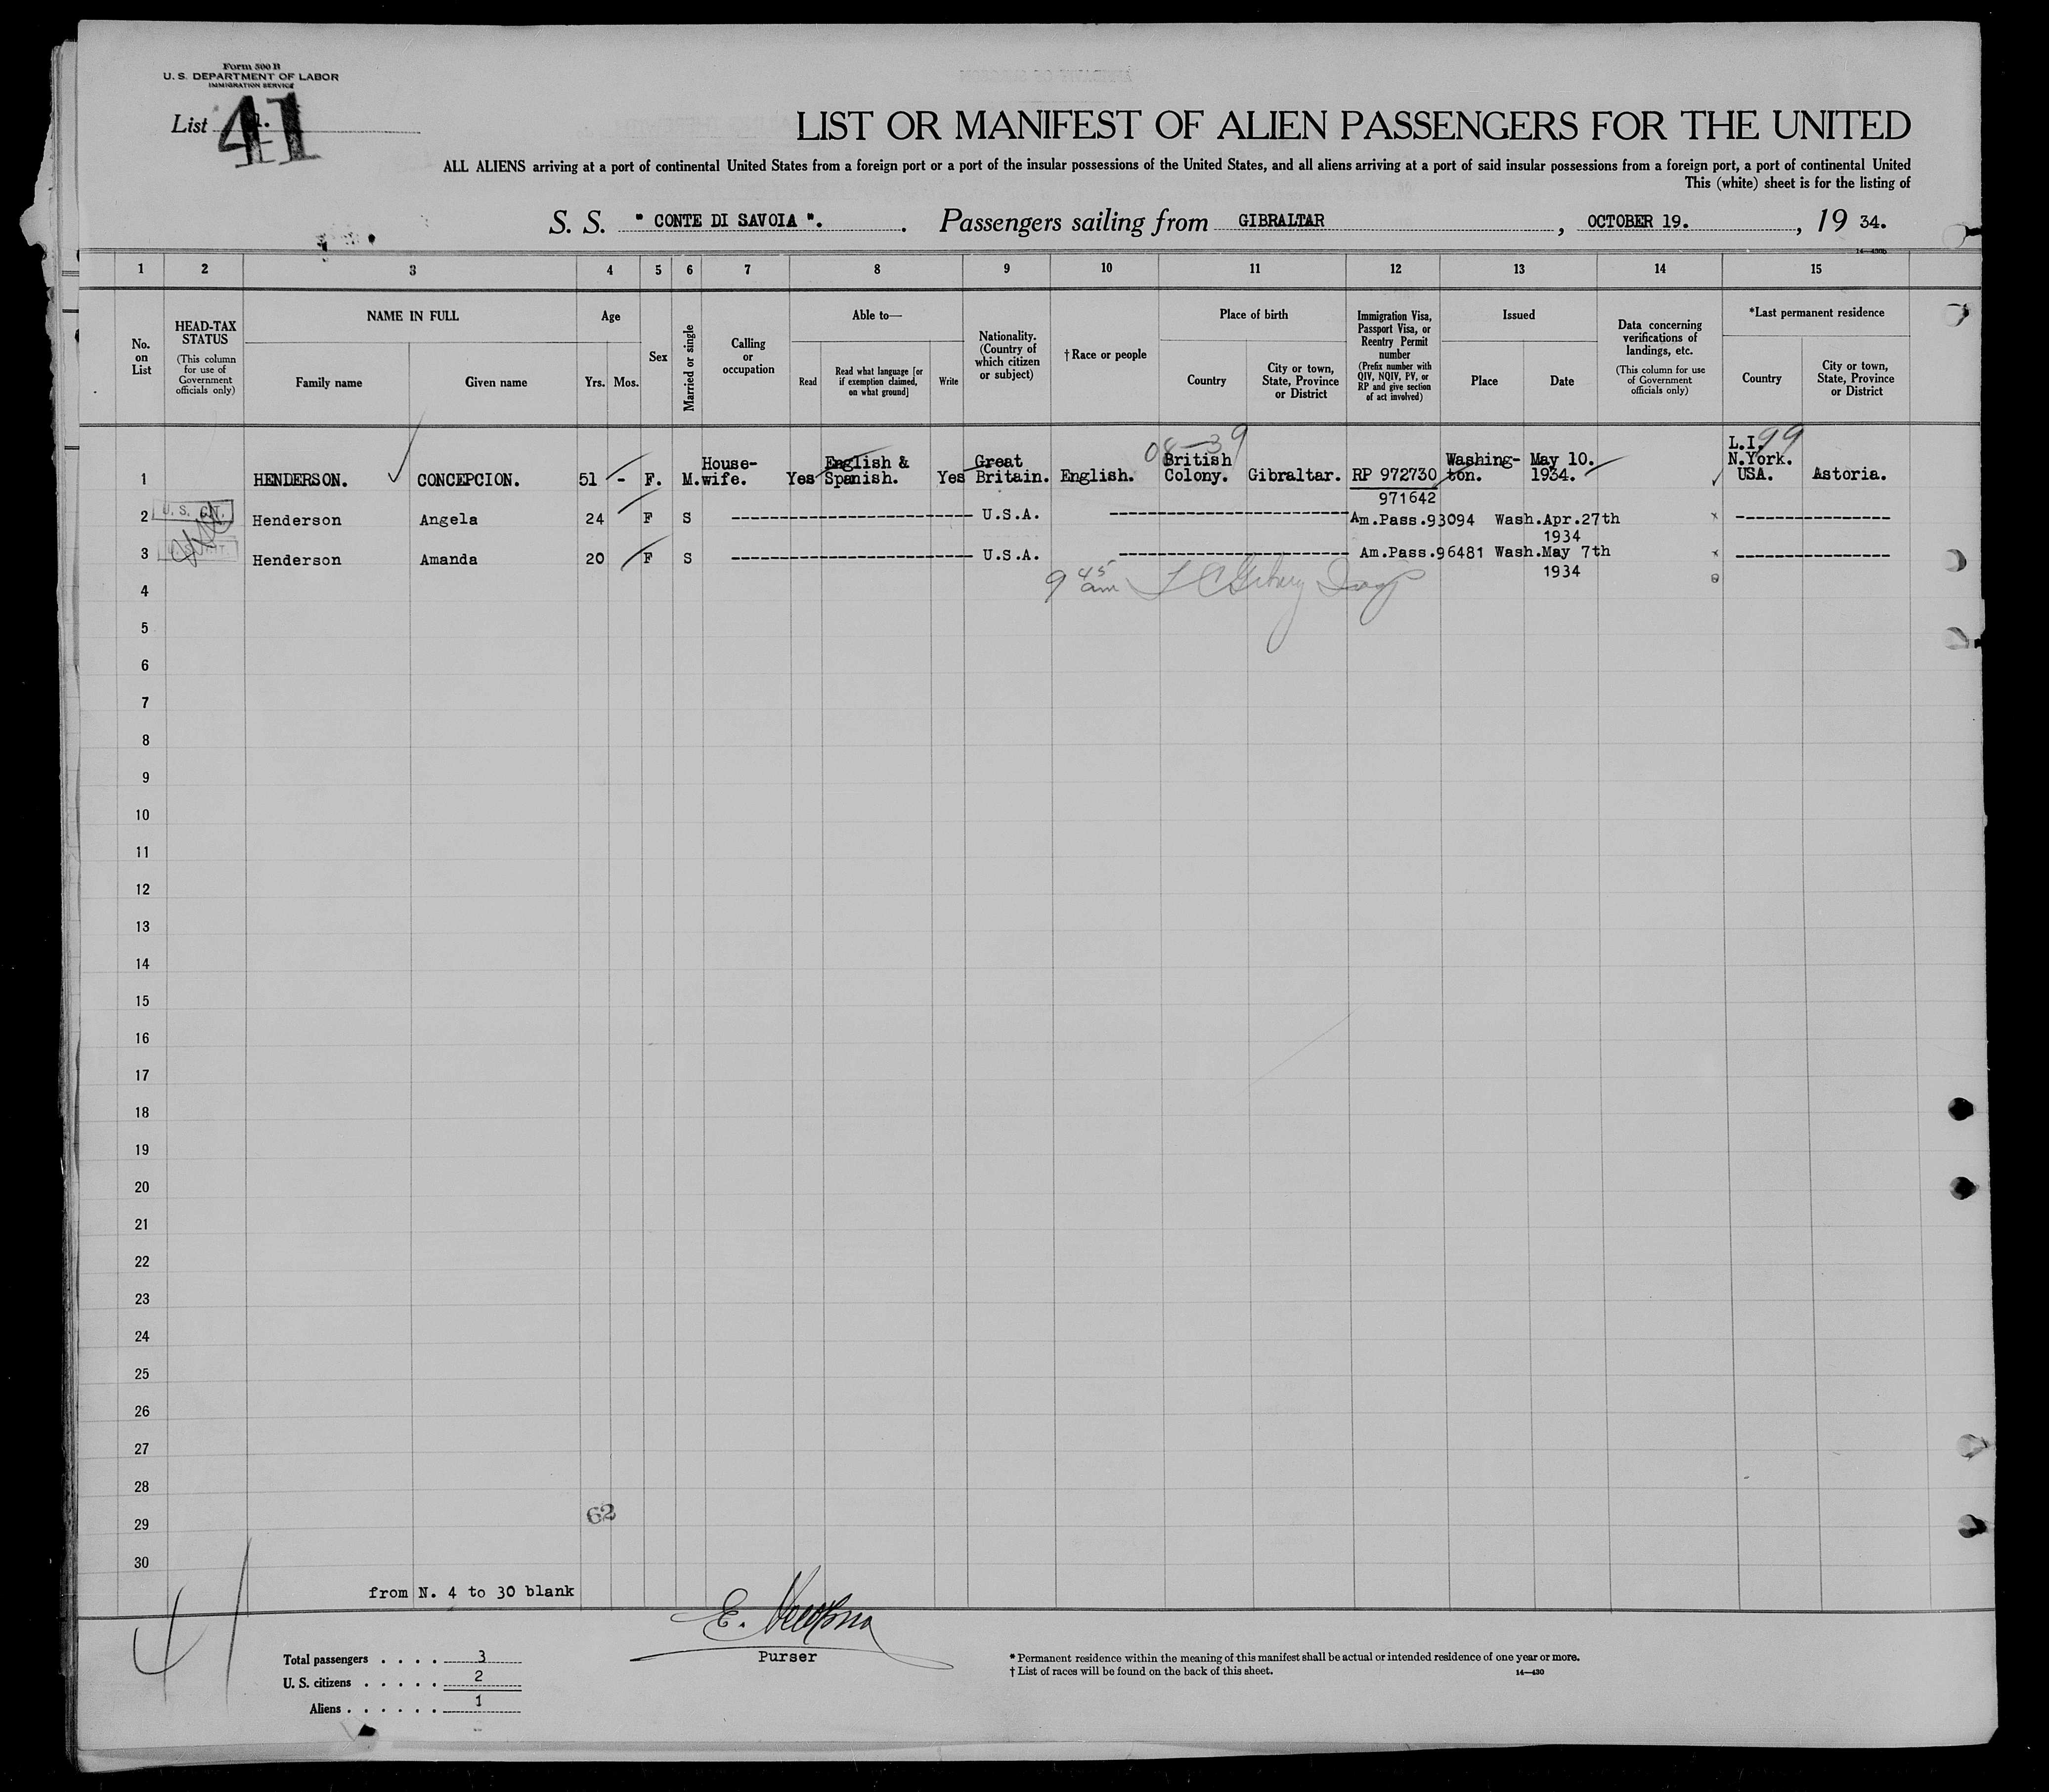 Form 500 B
U. S. DEPARTMENT OF LABOR
IMMIGRATION SERVICE
List 41
LIST OR MANIFEST OF ALIEN PASSENGERS FOR THE UNITED
ALL ALIENS arriving at a port of continental United States from a foreign port or a port of the insular possessions of the United States, and all aliens arriving at a port of said insular possessions from a foreign port, a port of continental United
This (white) sheet is for the listing of
S. S. " CONTE DI SAVOIA ". Passengers sailing from GIBRALTAR, OCTOBER 19., 19 34.
14—430b
1 2 3 4 5 6 7 8 9 10 11 12 13 14 15
No. on List
HEAD-TAX STATUS
(This column for use of Government officials only)
NAME IN FULL
Family name
Given name
Age
Yrs. Mos.
Sex
Married or single
Calling or occupation
Able to—
Read
Read what language [or if exemption claimed, on what ground]
Write
Nationality. (Country of which citizen or subject)
† Race or people
Place of birth
Country
City or town, State, Province or District
Immigration Visa, Passport Visa, or Reentry Permit number
(Prefix number with QIV, NQIV, PV, or RP and give section of act involved)
Issued
Place
Date
Data concerning verifications of landings, etc.
(This column for use of Government officials only)
*Last permanent residence
Country
City or town, State, Province or District
08—39
99
1 HENDERSON. CONCEPCION. 51 - F. M. House-wife. Yes English & Spanish. Yes Great Britain. English. British Colony. Gibraltar. RP 972730 Washing-ton. May 10. 1934. L.I. N.York. USA. Astoria.
971642
2 U. S. CIT. Henderson Angela 24 F S U.S.A. Am.Pass.93094 Wash.Apr.27th
1934
3 U. S. CIT. Henderson Amanda 20 F S U.S.A. Am.Pass.96481 Wash.May 7th
1934
9 45 am
4
5
6
7
8
9
10
11
12
13
14
15
16
17
18
19
20
21
22
23
24
25
26
27
28
29
62
30
from N. 4 to 30 blank
41
E.
Purser
Total passengers . . . . 3
U. S. citizens . . . . . 2
Aliens . . . . . . 1
* Permanent residence within the meaning of this manifest shall be actual or intended residence of one year or more.
† List of races will be found on the back of this sheet. 14—430